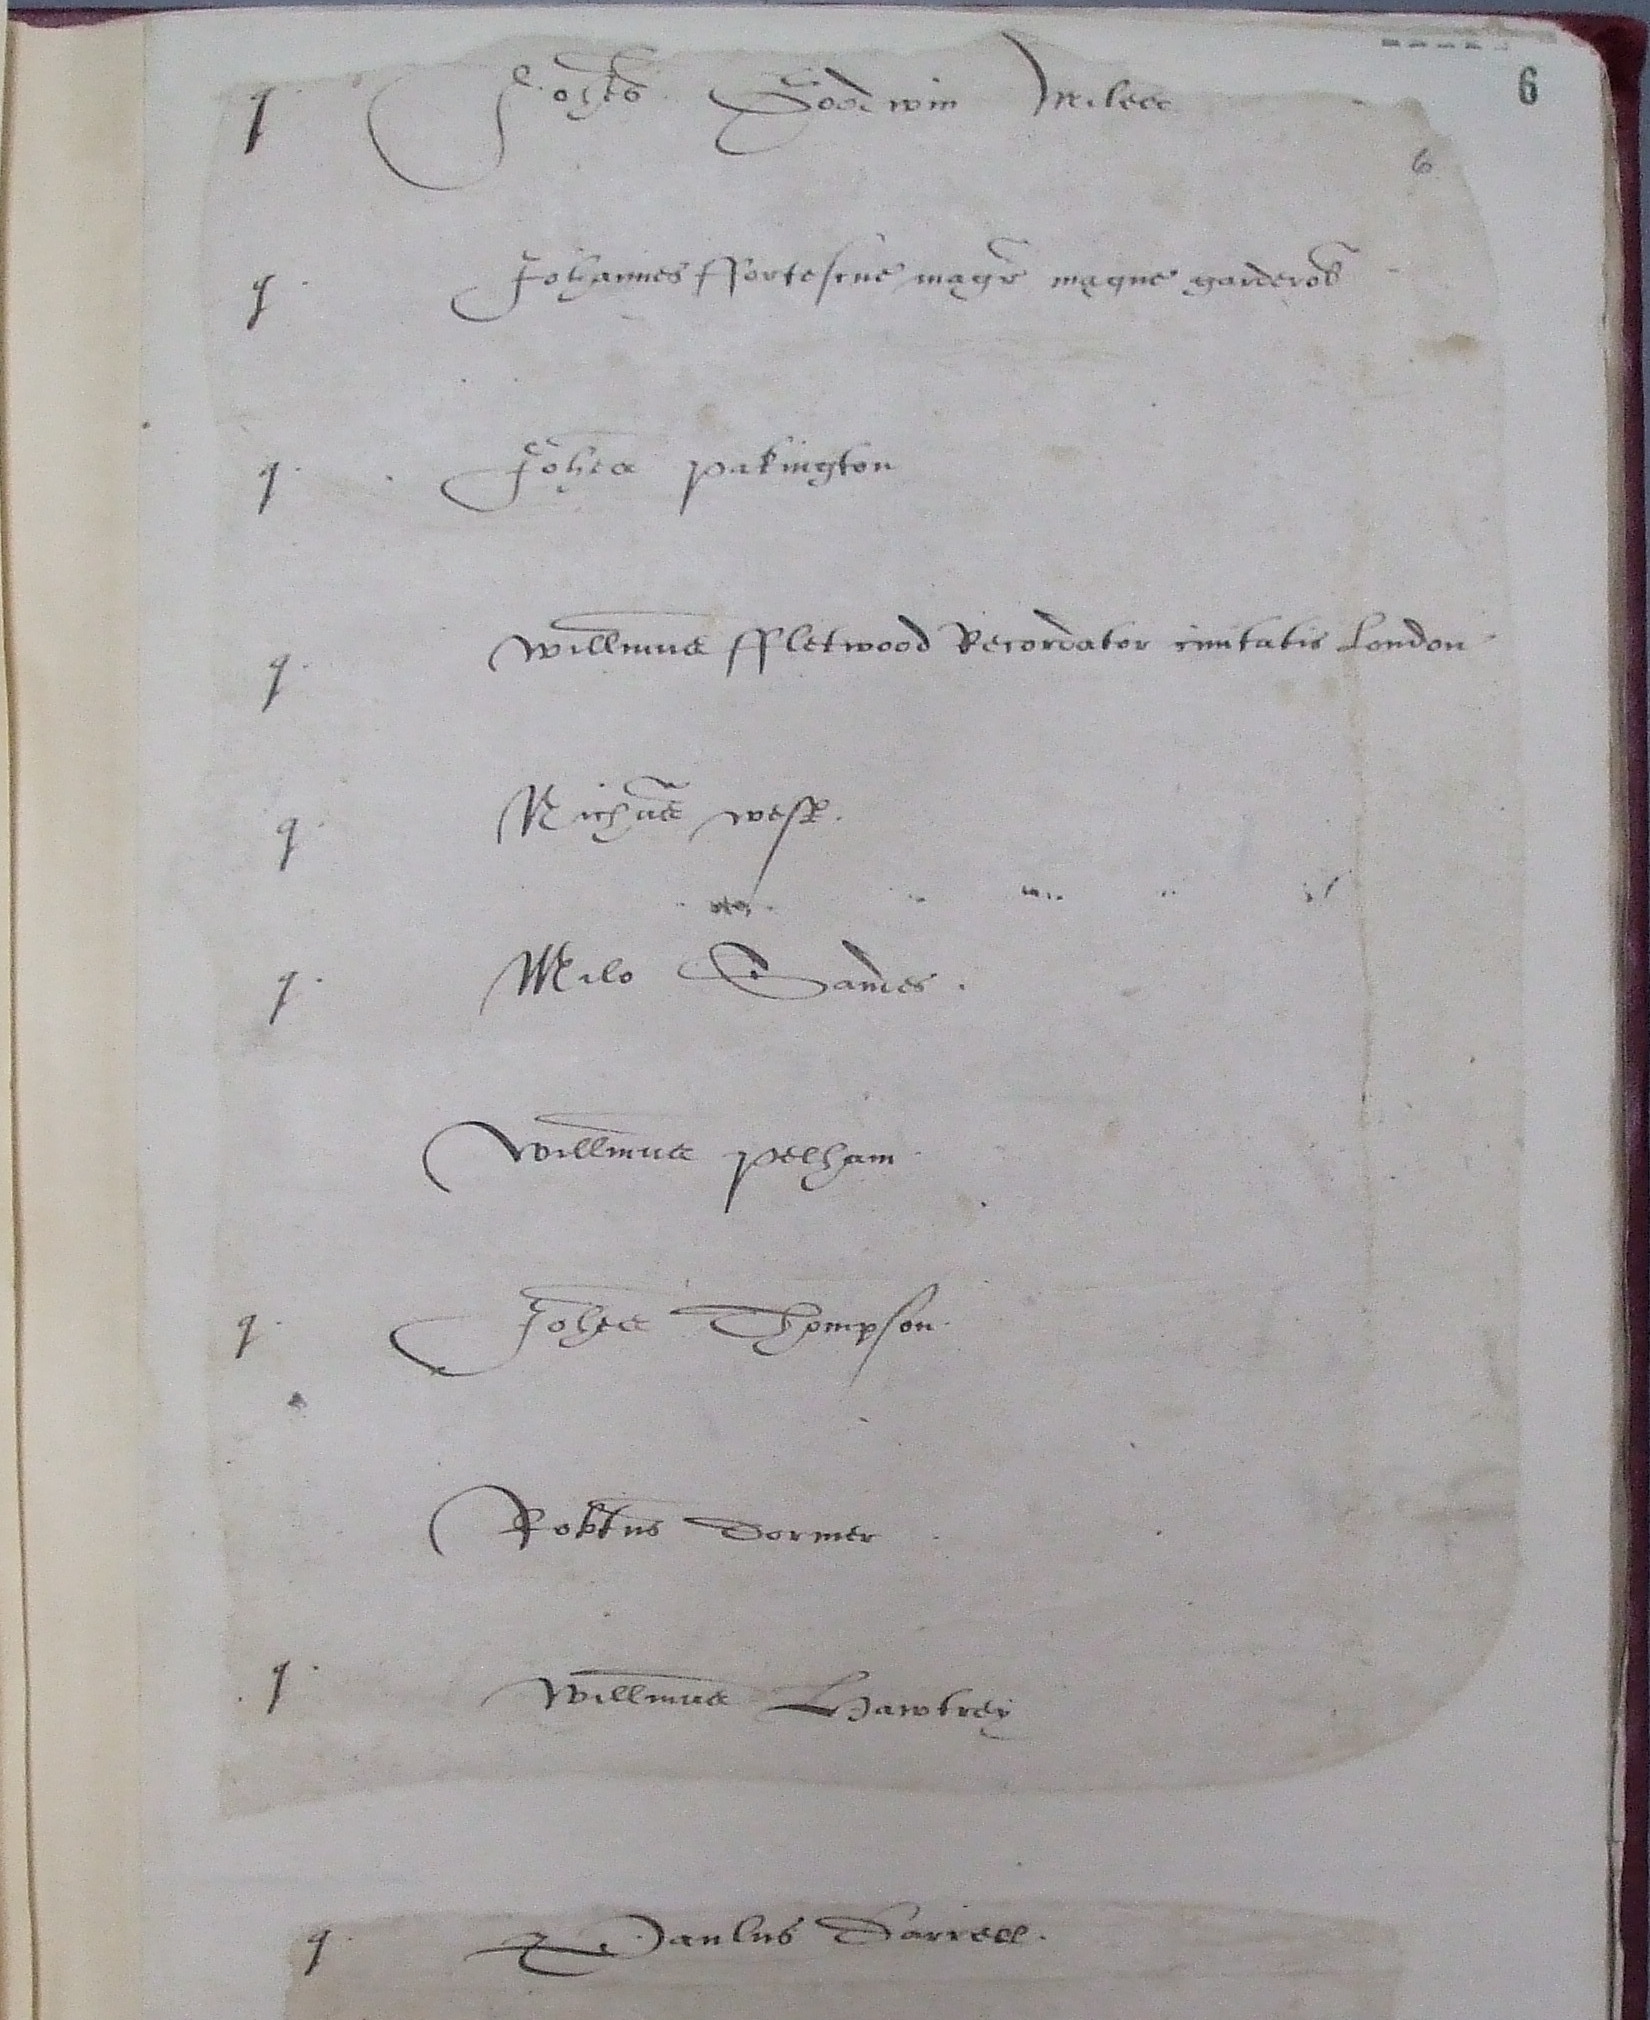 6
q Johes Goodwin Miles
6
q Johannes ffortescue magr magne garderob
q Johes pakington
q Willmus ffletwood Recordator civitatis London
q Nichus west.
q Milo Sandes.
Willmus pelham
q Johes Thompson
Robtus Dormer
q Willmus Hawtrey
q Paulus Darrell.